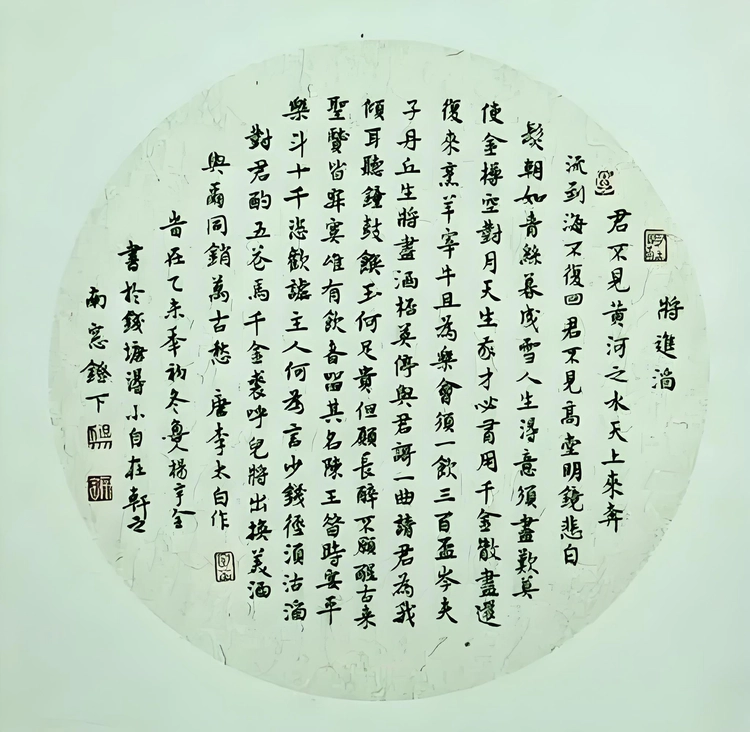 將進酒
君不見黃河之水天上來奔
流到海不復回君不見高堂明鏡悲白
髮朝如青絲暮成雪人生得意須盡歡莫
使金樽空對月天生我才必有用千金散盡還
復來烹羊宰牛且為樂會須一飲三百盃岑夫
子丹丘生將盡酒杯莫停與君謌一曲請君為我
傾耳聽鐘鼓饌玉何足貴但願長醉不願醒古来
聖賢皆寂寞唯有飲者留其名陳王昔時宴平
樂斗十千恣歡謔主人何為言少錢徑須沽酒
對君酌五花馬千金裘呼兒將出換美酒
與爾同銷萬古愁 唐李太白作
旹在乙未年初冬楊宇全
書於錢塘得小自在軒之
南窓鐙下